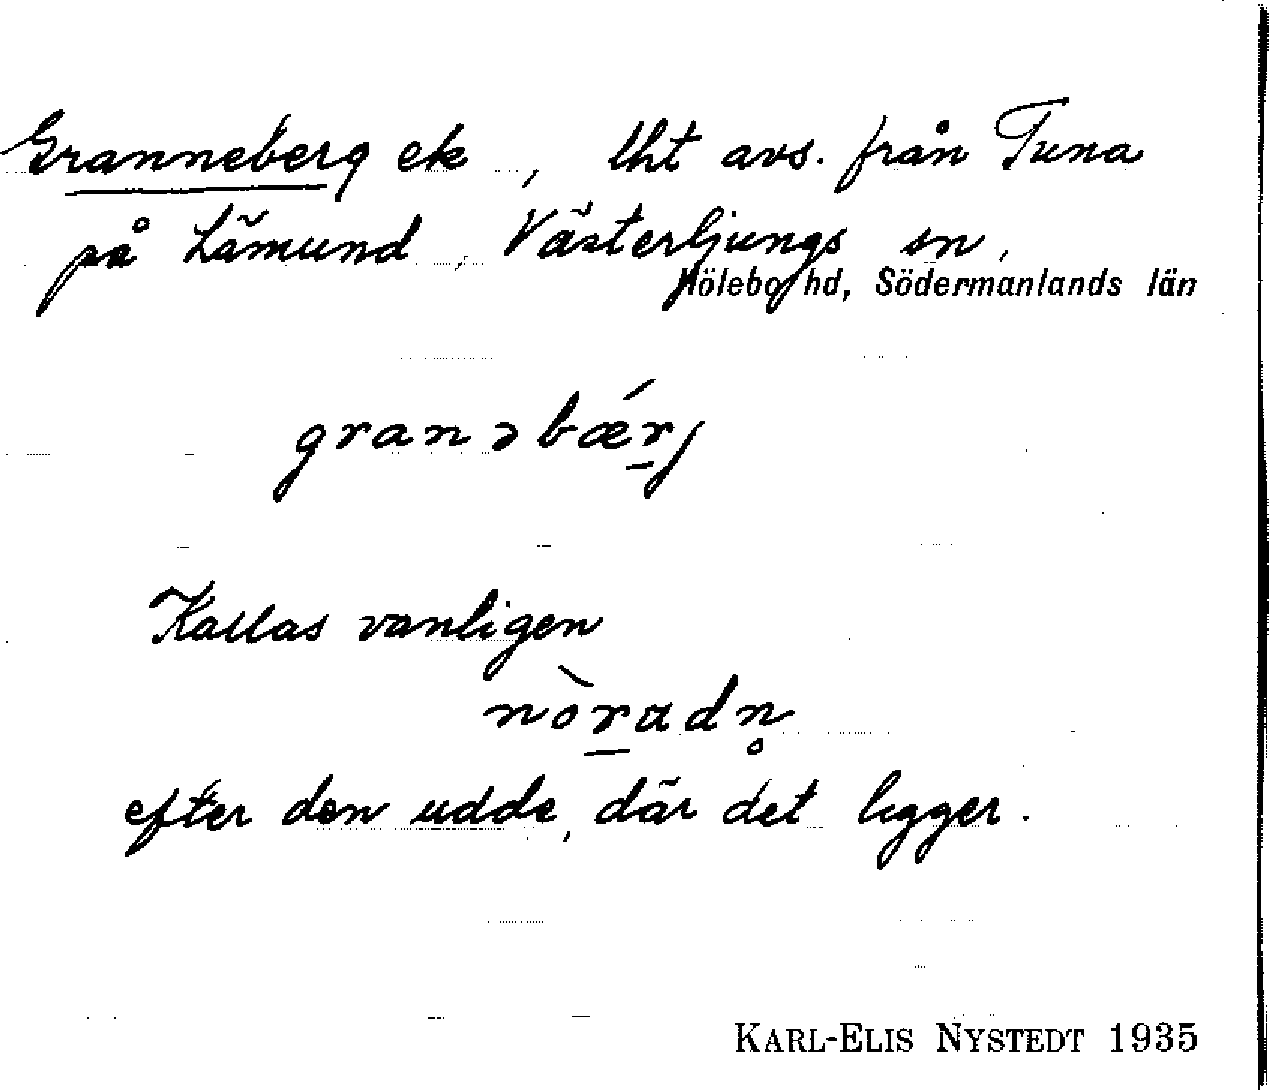 Granneberg ek, lht avs. från Tuna
på Lämund, Västerljungs sn,
Hölebo hd, Södermanlands län
granəbǽrj
Kallas vanligen
nòradn̥
efter den udde, där det ligger.
KARL-ELIS NYSTEDT 1935